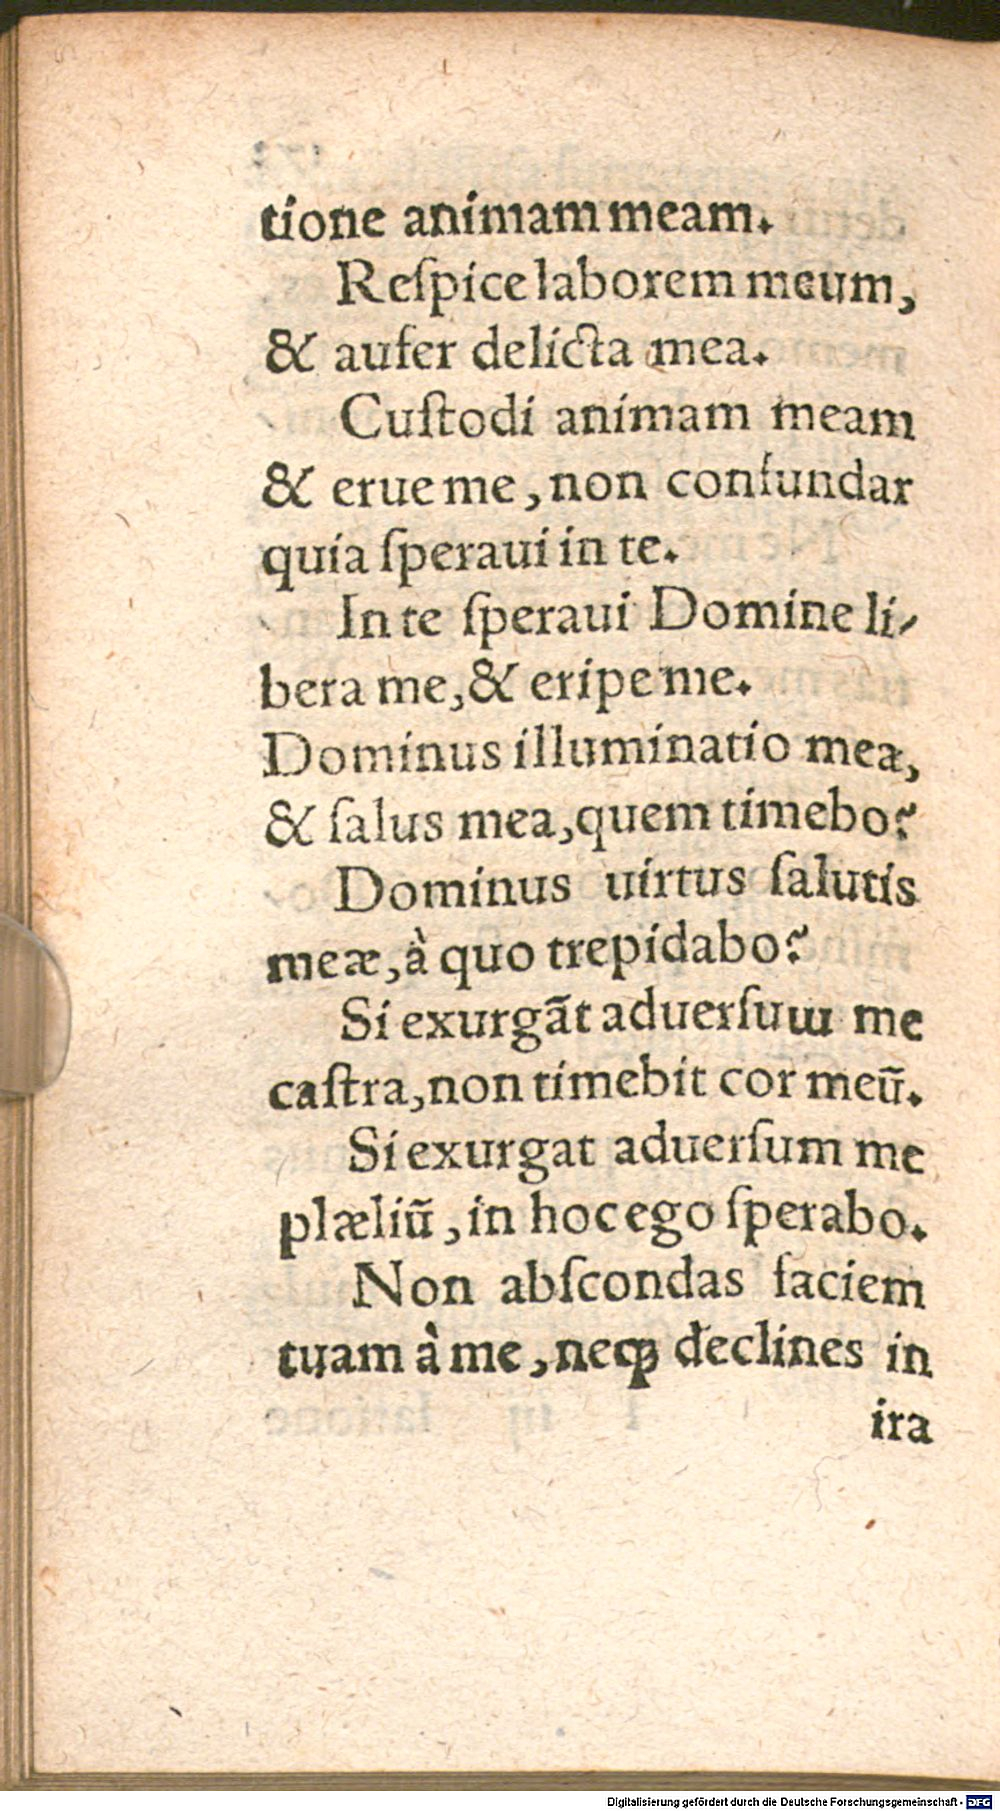 tione animam meam.
Reſpice laborem meum,
& aufer delicta mea.
Cuſtodi animam meam
& erue me, non confundar
quia ſperaui in te.
In te ſperaui Domine li-
bera me, & eripe me.
Dominus illuminatio mea,
& ſalus mea, quem timebo?
Dominus uirtus ſalutis
meæ, à quo trepidabo?
Si exurgãt aduerſum me
caſtra, non timebit cor meũ.
Si exurgat aduerſum me
plæliũ, in hoc ego ſperabo.
Non abſcondas faciem
tuam à me, neqꝫ declines in
ira
Digitalisierung gefördert durch die Deutsche Forschungsgemeinschaft - DFG